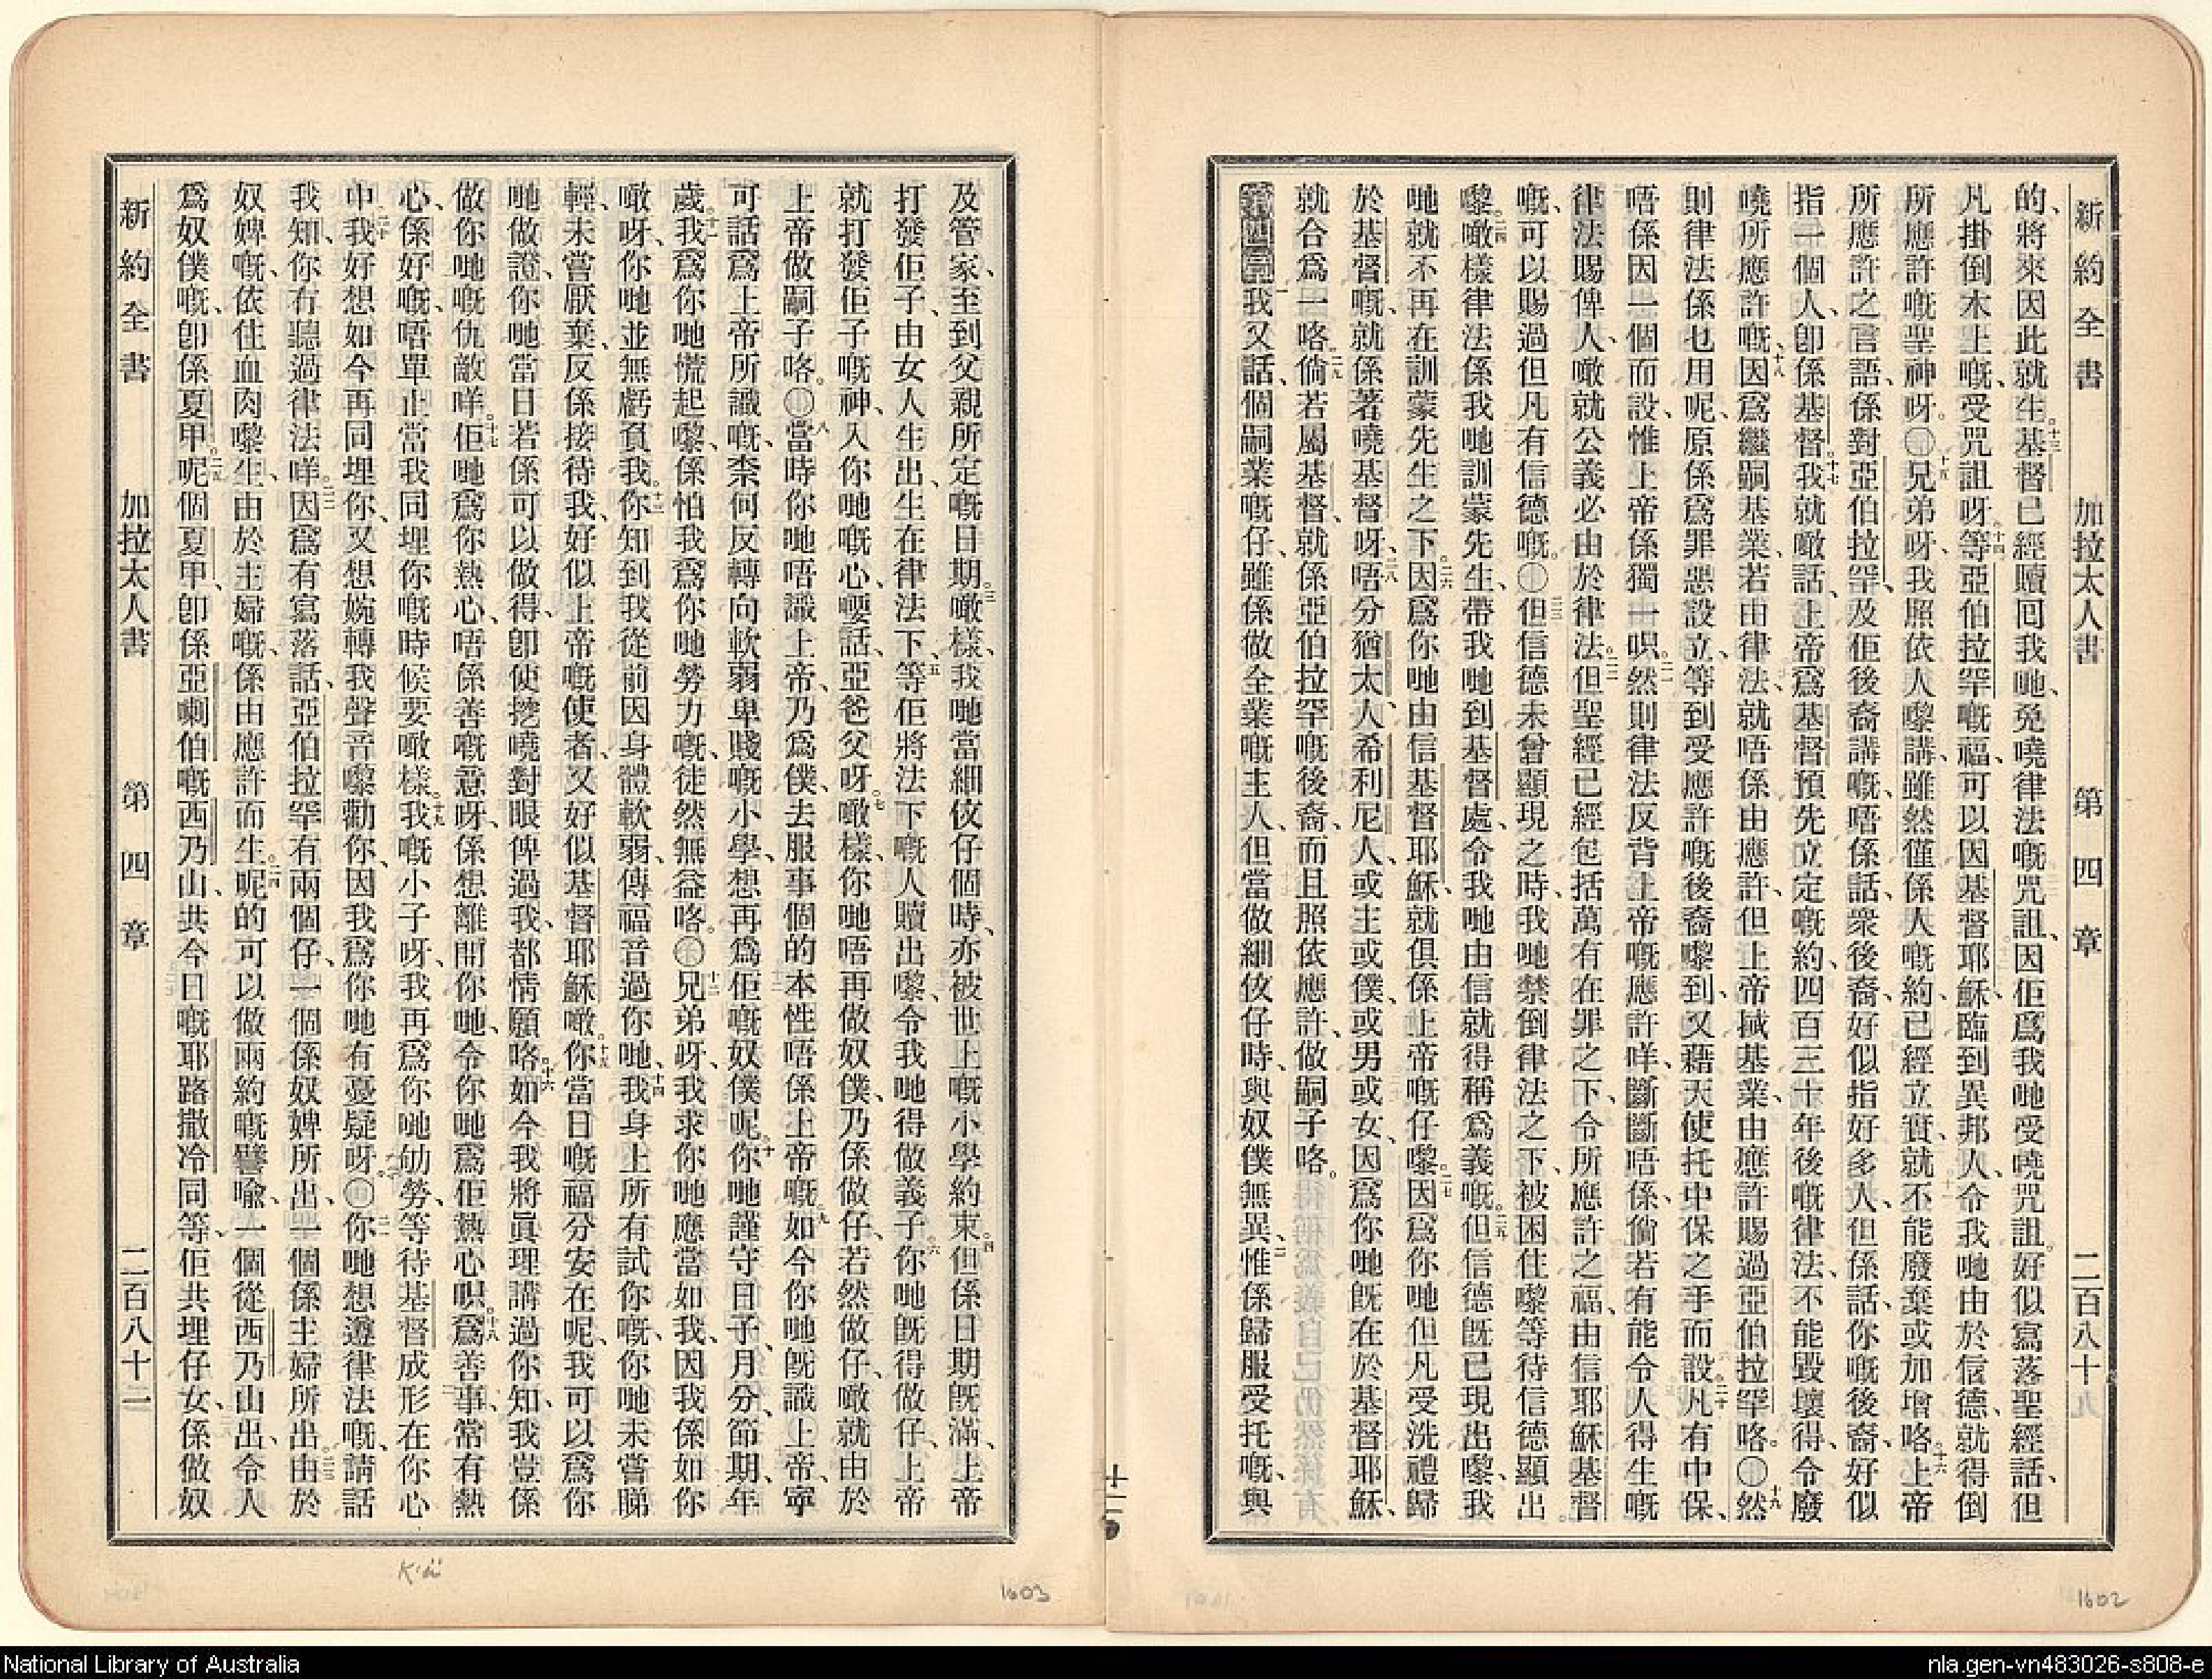 新約全書 加拉太人書 第四章 二百八十
的、將來因此就生。十三基督已經贖回我哋、免嘵律法嘅咒詛、因佢爲我哋受嘵咒詛。好似寫落聖經話、但
凡掛倒木上嘅、受咒詛呀。十四等亞伯拉罕嘅福、可以因基督耶穌、臨到異邦人、令我哋由於信德、就得倒
所應許嘅聖神呀。○十五兄弟呀、我照依人嚟講、雖然僅係人嘅約、已經立實、就不能廢棄或加增咯。十六上帝
所應許之言語、係對亞伯拉罕、及佢後裔講嘅、唔係話、衆後裔、好似指好多人、但係話、你嘅後裔、好似
指一個人、卽係基督。十七我就噉話、上帝爲基督預先立定嘅約、四百三十年後嘅律法、不能毀壞得、令廢
嘵所應許嘅、十八因爲繼嗣基業、若由律法、就唔係由應許、但上帝㨋基業、由應許賜過亞伯拉罕咯。○十九然
則律法係乜用呢、原係爲罪惡設立、等到受應許嘅後裔嚟到、又藉天使托中保之手而設。二十凡有中保、
唔係因一個而設、惟上帝係獨一呮。二一然則律法反背上帝嘅應許咩、斷斷唔係、倘若有能令人得生嘅
律法賜俾人、噉就公義必由於律法。二二但聖經已經包括萬有在罪之下、令所應許之福、由信耶穌基督
嘅、可以賜過但凡有信德嘅。○二三但信德未曾顯現之時、我哋禁倒律法之下、被困住嚟等待信德顯出
嚟。二四噉樣律法係我哋訓蒙先生、帶我哋到基督處、令我哋由信就得稱爲義嘅。二五但信德既已現出嚟、我
哋就不再在訓蒙先生之下。二六因爲你哋由信基督耶穌、就俱係上帝嘅仔嚟。二七因爲你哋但凡受洗禮歸
於基督嘅、就係著嘵基督呀、二八唔分猶太人、希利尼人、或主或僕、或男或女、因爲你哋既在於基督耶穌、
就合爲一咯。二九倘若屬基督、就係亞伯拉罕嘅後裔、而且照依應許、做嗣子咯。
第四章一我又話、個嗣業嘅仔、雖係做全業嘅主人、但當做細佼仔時、與奴僕無異、二惟係歸服受托嘅、與
及管家、至到父親所定嘅日期。三噉樣、我哋當細佼仔個時、亦被世上嘅小學約束。四但係日期既滿、上帝
打發佢子、由女人生出、生在律法下、五等佢將法下嘅人贖出嚟、令我哋得做義子。六你哋既得做仔、上帝
就打發佢子嘅神、入你哋嘅心、嗌話、亞爸父呀。七噉樣、你哋唔再做奴僕、乃係做仔、若然做仔、噉就由於
上帝做嗣子咯。○八當時你哋唔識上帝、乃爲僕、去服事個的本性唔係上帝嘅。九如今你哋既識上帝、寧
可話爲上帝所識嘅、柰何反轉向軟弱卑賤嘅小學、想再爲佢嘅奴僕呢。十你哋謹守日子、月分、節期、年
歲。十一我爲你哋慌起嚟、係怕我爲你哋勞力嘅、徒然無益咯。○十二兄弟呀、我求你哋應當如我、因我係如你
噉呀、你哋並無虧負我。十三你知到我從前因身體軟弱、傳福音過你哋、十四我身上所有試你嘅、你哋未嘗睇
輕、未嘗厭棄、反係接待我、好似上帝嘅使者、又好似基督耶穌噉。十五你當日嘅福分安在呢、我可以爲你
哋做證、你哋當日若係可以做得、卽使挖嘵對眼俾過我、都情願咯。十六如今我將眞理講過你知、我豈係
做你哋嘅仇敵咩。十七佢哋爲你熱心、唔係善嘅意呀、係想離開你哋、令你哋爲佢熱心呮。十八爲善事、常有熱
心、係好嘅、唔單止當我同埋你嘅時候要噉樣。十九我嘅小子呀、我再爲你哋劬勞、等待基督成形在你心
中、二十我好想如今再同埋你、又想婉轉我聲音嚟勸你、因我爲你哋有憂疑呀。○二一你哋想遵律法嘅、請話
我知、你有聽過律法咩。二二因爲有寫落話、亞伯拉罕有兩個仔、一個係奴婢所出、一個係主婦所出。二三由於
奴婢嘅、依住血肉嚟生、由於主婦嘅、係由應許而生。二四呢的可以做兩約嘅譬喩、一個從西乃山出、令人
爲奴僕嘅、卽係夏甲。二五呢個夏甲、卽係亞喇伯嘅西乃山、共今日嘅耶路撒冷同等、佢共埋仔女、係做奴
新約全書 加拉太人書 第四章 二百八十一
十二
1603
1602
National Library of Australia
nla.gen-vn483026-s808-e